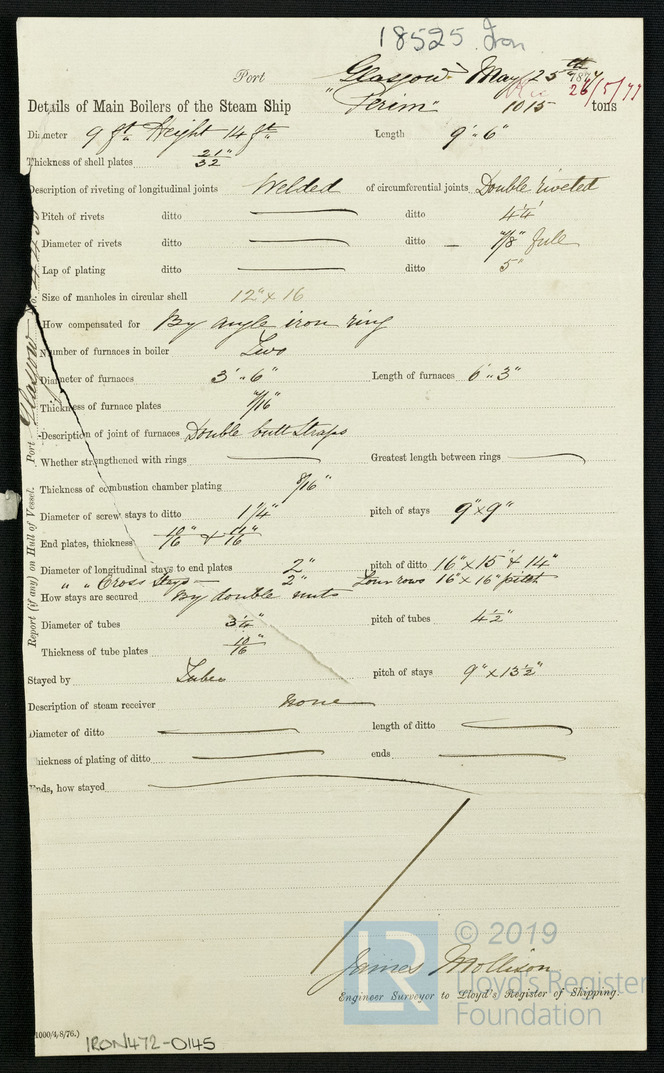 18525 Iron
Port Glasgow May 25th 1877
Rec 26/5/77
Details of Main Boilers of the Steam Ship "Perim" 1015 tons
Diameter 9 ft Height 14 ft Length 9'"6"
Thickness of shell plates 21/32"
Description of riveting of longitudinal joints Welded of circumferential joints Double riveted
Pitch of rivets ditto — ditto 4 1/4"
Diameter of rivets ditto — ditto — 7/8" full
Lap of plating ditto — ditto 5"
Size of manholes in circular shell 12" x 16
How compensated for By angle iron ring
Number of furnaces in boiler Two
Diameter of furnaces 3'"6" Length of furnaces 6'"3"
Thickness of furnace plates 7/16"
Description of joint of furnaces Double butt Straps
Whether strengthened with rings — Greatest length between rings —
Thickness of combustion chamber plating 8/16"
Diameter of screw stays to ditto 1 1/4" pitch of stays 9" x 9"
End plates, thickness 10/16" & 11/16"
Diameter of longitudinal stays to end plates 2" pitch of ditto 16" x 15" & 14"
" " Cross Stays — 2" Four rows 16" x 16" pitch
How stays are secured By double nuts
Diameter of tubes 3 1/4" pitch of tubes 4 1/2"
Thickness of tube plates 10/16"
Stayed by Tubes pitch of stays 9" x 13 1/2"
Description of steam receiver none
Diameter of ditto — length of ditto —
Thickness of plating of ditto — ends —
Ends, how stayed —
James Mollison
Engineer Surveyor to Lloyd's Register of Shipping.
1000/4/8/76.)
IRON472-0145
Report (if any) on Hull of Vessel. Port Glasgow No.
LR © 2019
Lloyd's Register
Foundation